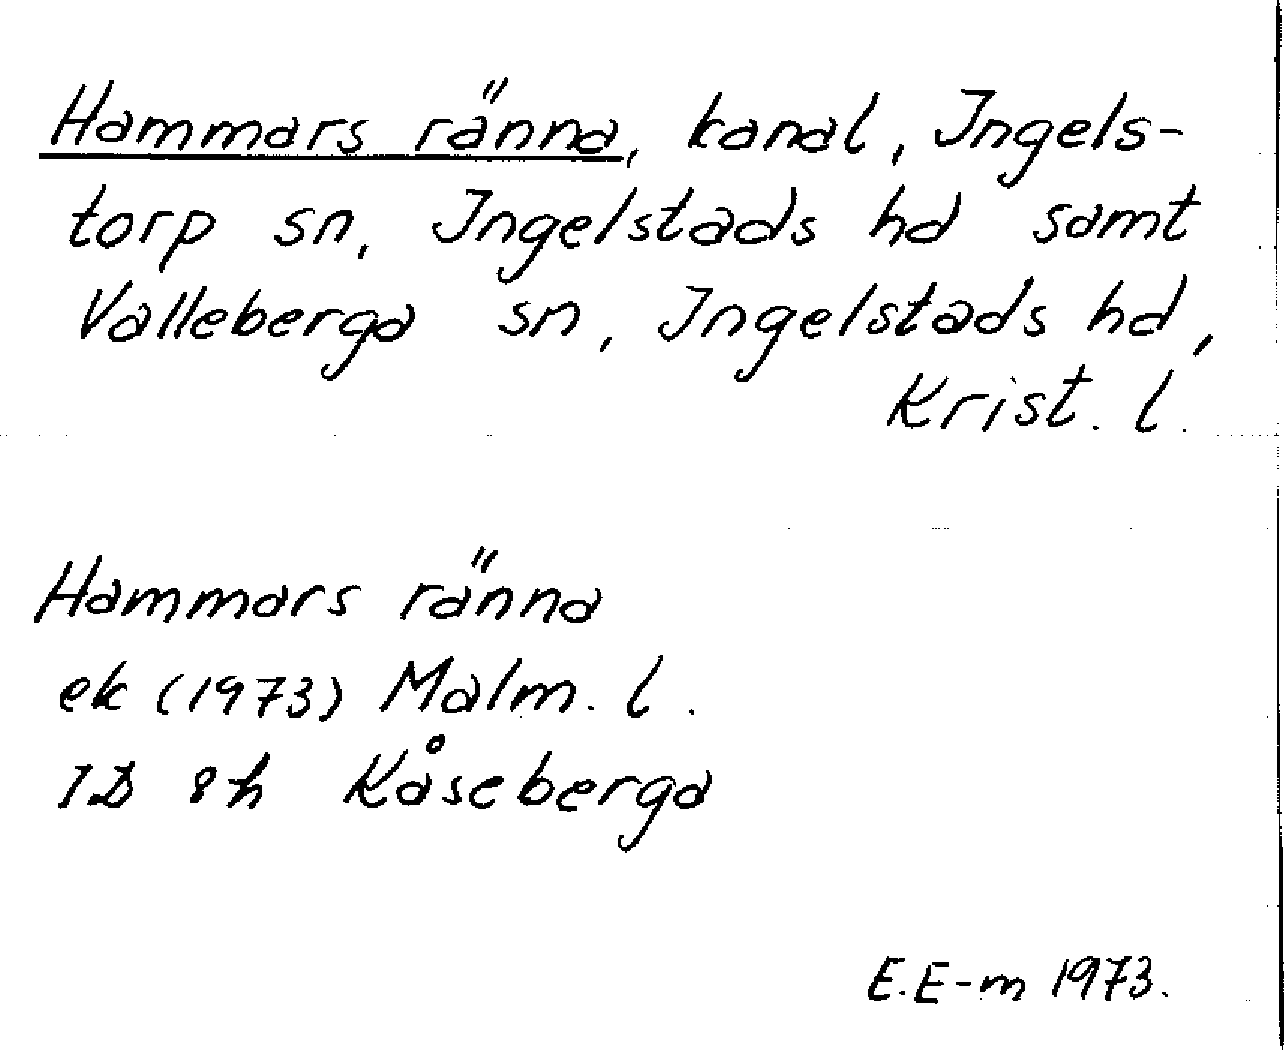 Hammars ränna, kanal, Ingels-
torp sn, Ingelstads hd samt
Valleberga sn, Ingelstads hd,
Krist. l.
Hammars ränna
ek (1973) Malm. l.
1D 8h Kåseberga
E.E-m 1973.